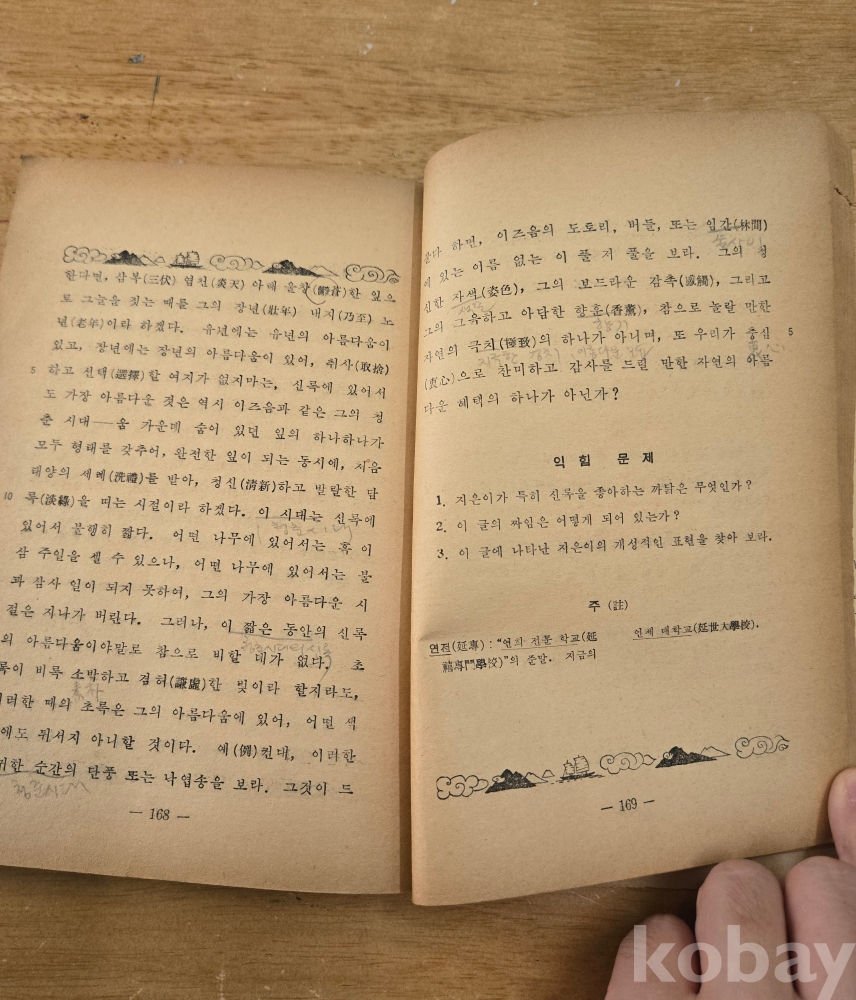 한다면, 삼부(三伏) 염천(炎天) 아래 울창(鬱蒼)한 잎으
로 그늘을 짓는 때를 그의 장년(壯年) 내지(乃至) 노
년(老年)이라 하겠다. 유년에는 유년의 아름다움이
있고, 장년에는 장년의 아름다움이 있어, 취사(取捨)
5 하고 선택(選擇)할 여지가 없지마는, 신록에 있어서
도 가장 아름다운 것은 역시 이즈음과 같은 그의 청
춘 시대——움 가운데 숨어 있던 잎의 하나하나가
모두 형태를 갖추어, 완전한 잎이 되는 동시에, 처음
태양의 세례(洗禮)를 받아, 청신(淸新)하고 발랄한 담
10 록(淡綠)을 띠는 시절이라 하겠다. 이 시대는 신록에
있어서 분명히 짧다. 어떤 나무에 있어서는 혹 이
삼 주일을 셀 수 있으나, 어떤 나무에 있어서는 불
과 삼사 일이 되지 못하여, 그의 가장 아름다운 시
절은 지나가 버린다. 그러나, 이 짧은 동안의 신록
의 아름다움이야말로 참으로 비할 데가 없다. 초
록이 비록 소박하고 겸허(謙虛)한 빛이라 할지라도,
러한 때의 초록은 그의 아름다움에 있어, 어떤 색
에도 뒤서지 아니할 것이다. 예(例)컨대, 이러한
한 순간의 단풍 또는 낙엽송을 보라. 그것이 드
— 168 —
다 하면, 이즈음의 도토리, 버들, 또는 임간(林間)
에 있는 이름 없는 이 풀 저 풀을 보라. 그의 청
신한 자색(姿色), 그의 보드라운 감촉(感觸), 그리고
그의 그윽하고 아담한 향훈(香薰), 참으로 놀랄 만한
자연의 극치(極致)의 하나가 아니며, 또 우리가 충심 5
(衷心)으로 찬미하고 감사를 드릴 만한 자연의 아름
다운 혜택의 하나가 아닌가?
익힘 문제
1. 지은이가 특히 신록을 좋아하는 까닭은 무엇인가?
2. 이 글의 짜임은 어떻게 되어 있는가?
3. 이 글에 나타난 지은이의 개성적인 표현을 찾아 보라.
주 (註)
연전(延專) : "연희 전문 학교(延
禧專門學校)"의 준말. 지금의
연세 대학교(延世大學校).
— 169 —
kobay